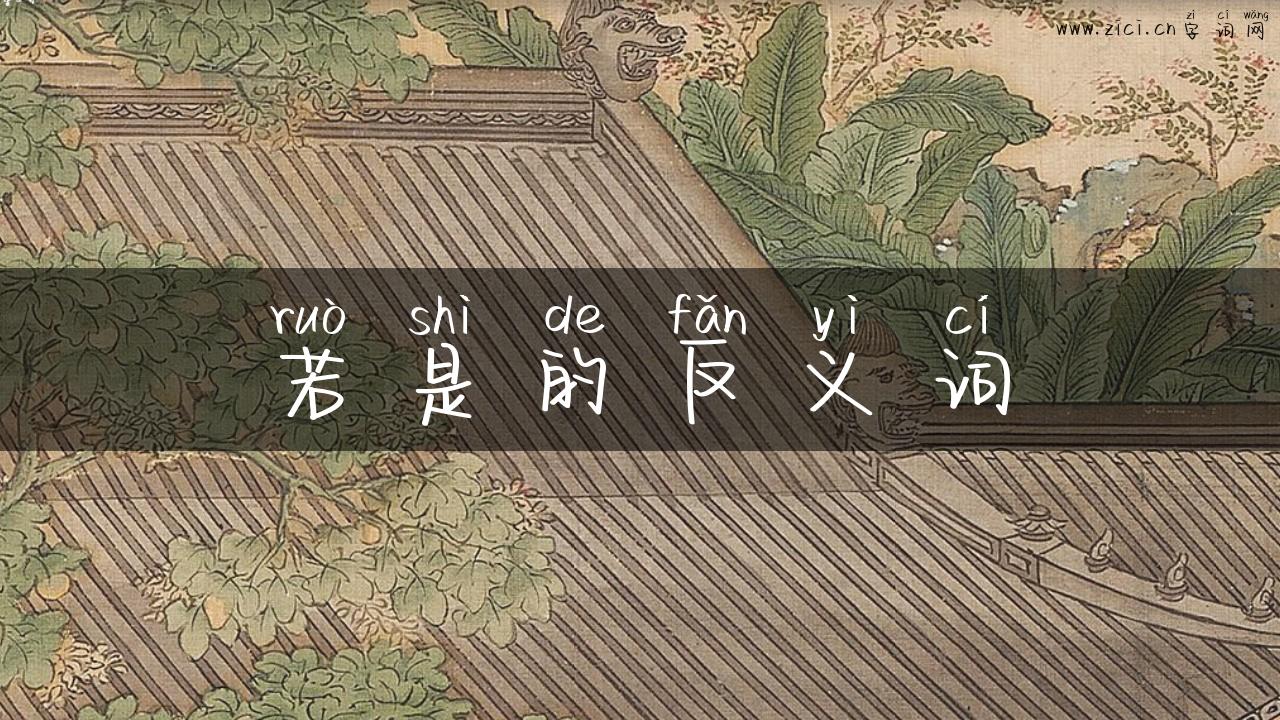 zì cí wǎng
www.zici.cn 字词网
ruò shi de fǎn yì cí
若是的反义词